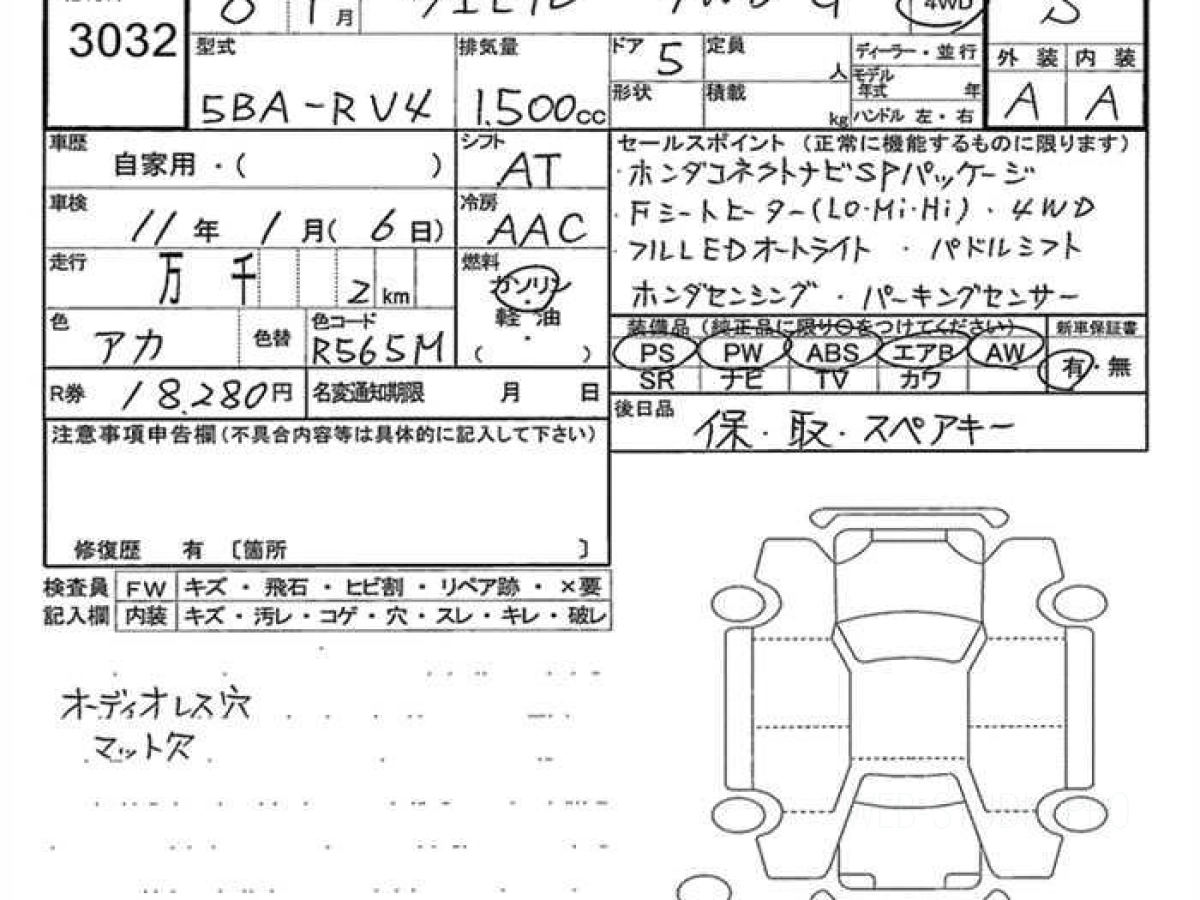 3032
8 1 月 ヴェゼル 4WD G 4WD S
型式 排気量 ドア 5 定員 人 ディーラー・並行 外装 内装
モデル年式 年
5BA-RV4 1.500cc 形状 積載 kg ハンドル 左・右 A A
車歴 自家用・( ) シフト AT セールスポイント (正常に機能するものに限ります)
・ホンダコネクトナビSPパッケージ
車検 11年 1月( 6日) 冷房 AAC ・Fシートヒーター(LO・Mi・Hi)・4WD
走行 万 千 2 km 燃料 ガソリン・軽油・( ) ・フルLEDオートライト ・パドルシフト
ホンダセンシング・パーキングセンサー
色 アカ 色替 色コード R565M 装備品 (純正品に限り○をつけてください) 新車保証書
PS PW ABS エアB AW 有・無
SR ナビ TV カワ
R券 18.280円 名変通知期限 月 日
後日品 保・取・スペアキー
注意事項申告欄(不具合内容等は具体的に記入して下さい)
修復歴 有 〔箇所 〕
検査員 FW キズ・飛石・ヒビ割・リペア跡・×要
記入欄 内装 キズ・汚レ・コゲ・穴・スレ・キレ・破レ
オーディオレス穴
マット穴